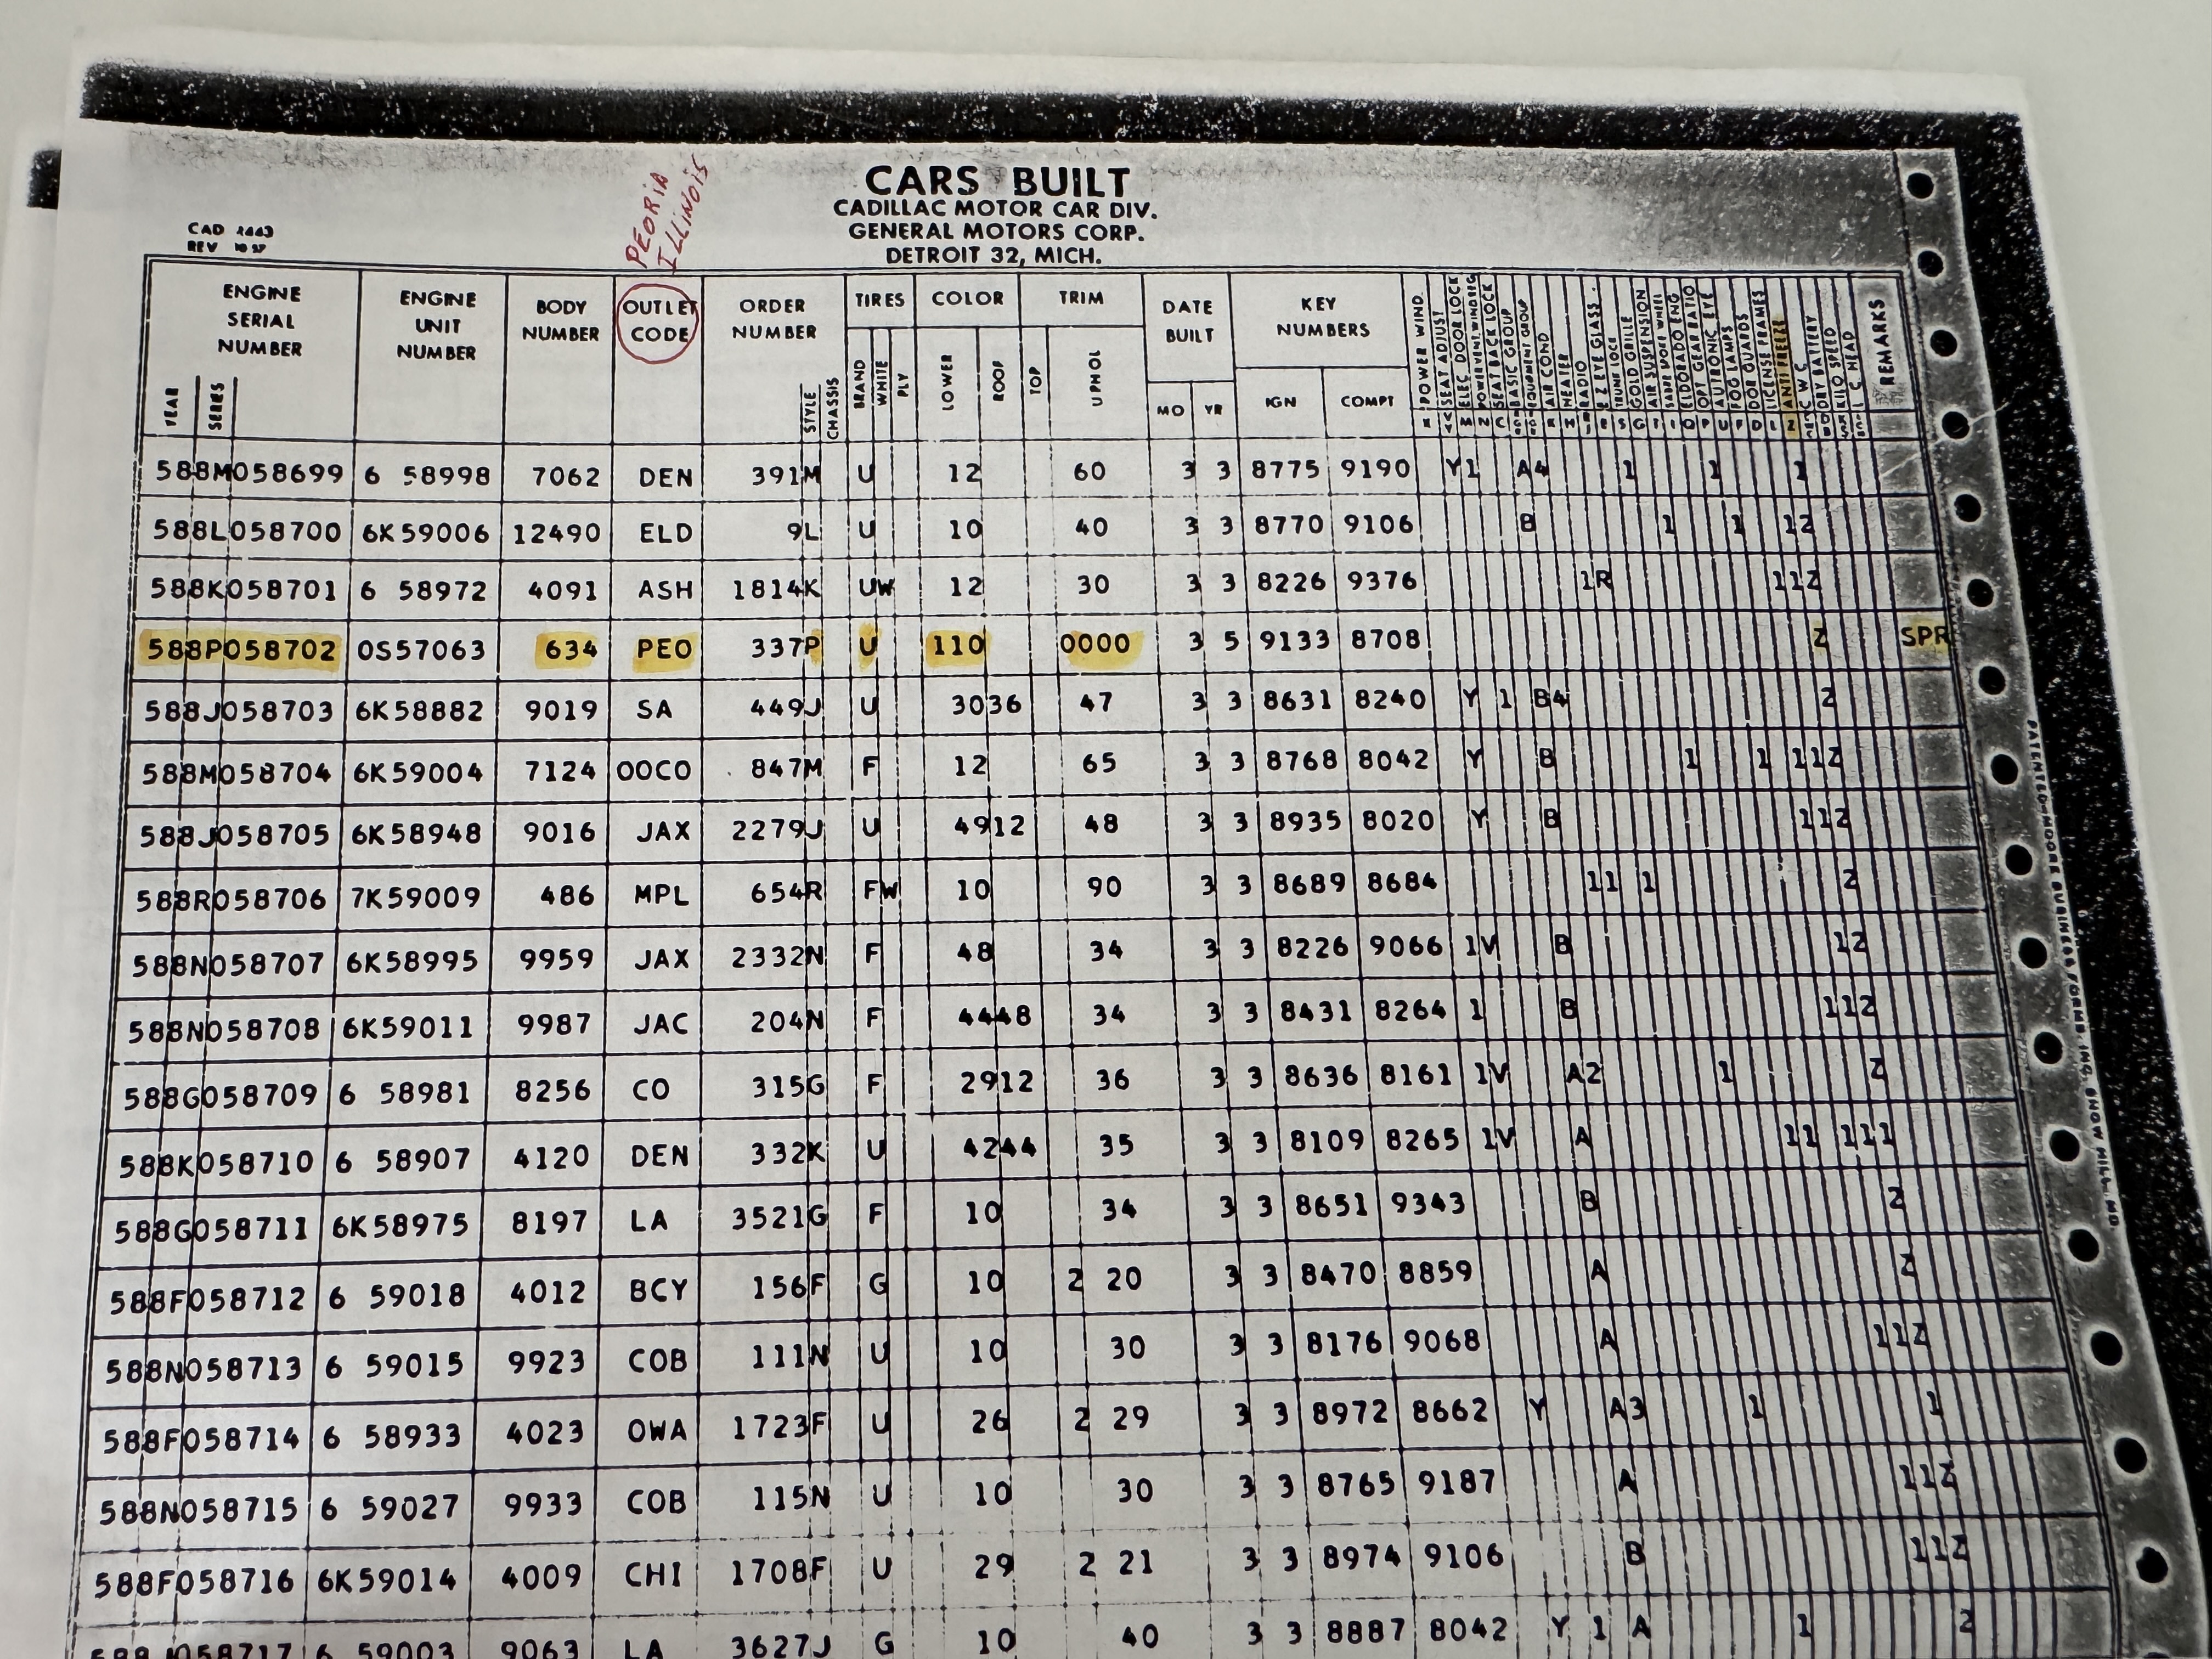 PEORIA
ILLINOIS
CARS BUILT
CADILLAC MOTOR CAR DIV.
GENERAL MOTORS CORP.
DETROIT 32, MICH.
CAD 4443
REV 10 57
ENGINE SERIAL NUMBER YEAR SERIES ENGINE UNIT NUMBER BODY NUMBER OUTLET CODE ORDER NUMBER STYLE CHASSIS TIRES BRAND WHITE PLY COLOR LOWER ROOF TRIM TOP UPHOL DATE BUILT MO YR KEY NUMBERS IGN COMPT POWER WIND. SEAT ADJUST ELEC DOOR LOCK SEAT BACK LOCK BASIC GROUP AIR COND HEATER RADIO E Z EYE GLASS TRUNK LOCK GOLD GRILLE AIR SUSPENSION ELDORADO ENG OPT GEAR RATIO AUTRONIC EYE FOG LAMPS DOOR GUARDS LICENSE FRAMES ANTI FREEZE DRY BATTERY KILO SPEED REMARKS
588M058699 6 58998 7062 DEN 391M U 12 60 3 3 8775 9190 Y1 A4 1 1 1
588L058700 6K59006 12490 ELD 9L U 10 40 3 3 8770 9106 B 1 1 12
588K058701 6 58972 4091 ASH 1814K UW 12 30 3 3 8226 9376 1R 11Z
588P058702 0S57063 634 PEO 337P U 110 0000 3 5 9133 8708 Z SPR
588J058703 6K58882 9019 SA 449J U 3036 47 3 3 8631 8240 Y 1 B4 2
588M058704 6K59004 7124 OOCO 847M F 12 65 3 3 8768 8042 Y B 1 1 11Z
588J058705 6K58948 9016 JAX 2279J U 4912 48 3 3 8935 8020 Y B 112
588R058706 7K59009 486 MPL 654R FW 10 90 3 3 8689 8684 11 1 2
588N058707 6K58995 9959 JAX 2332N F 48 34 3 3 8226 9066 1V B 12
588N058708 6K59011 9987 JAC 204N F 4448 34 3 3 8431 8264 1 B 112
588G058709 6 58981 8256 CO 315G F 2912 36 3 3 8636 8161 1V A2 1 Z
588K058710 6 58907 4120 DEN 332K U 4244 35 3 3 8109 8265 1V A 11 111
588G058711 6K58975 8197 LA 3521G F 10 34 3 3 8651 9343 B 2
588F058712 6 59018 4012 BCY 156F G 10 2 20 3 3 8470 8859 A Z
588N058713 6 59015 9923 COB 111N U 10 30 3 3 8176 9068 A 11Z
588F058714 6 58933 4023 OWA 1723F U 26 2 29 3 3 8972 8662 Y A3 1 1
588N058715 6 59027 9933 COB 115N U 10 30 3 3 8765 9187 A 11Z
588F058716 6K59014 4009 CHI 1708F U 29 2 21 3 3 8974 9106 B 11Z
588J058717 6 59003 9063 LA 3627J G 10 40 3 3 8887 8042 Y 1 A 1 2
PATENTED-MOORE BUSINESS FORMS, INC. SNOW HILL, MD.